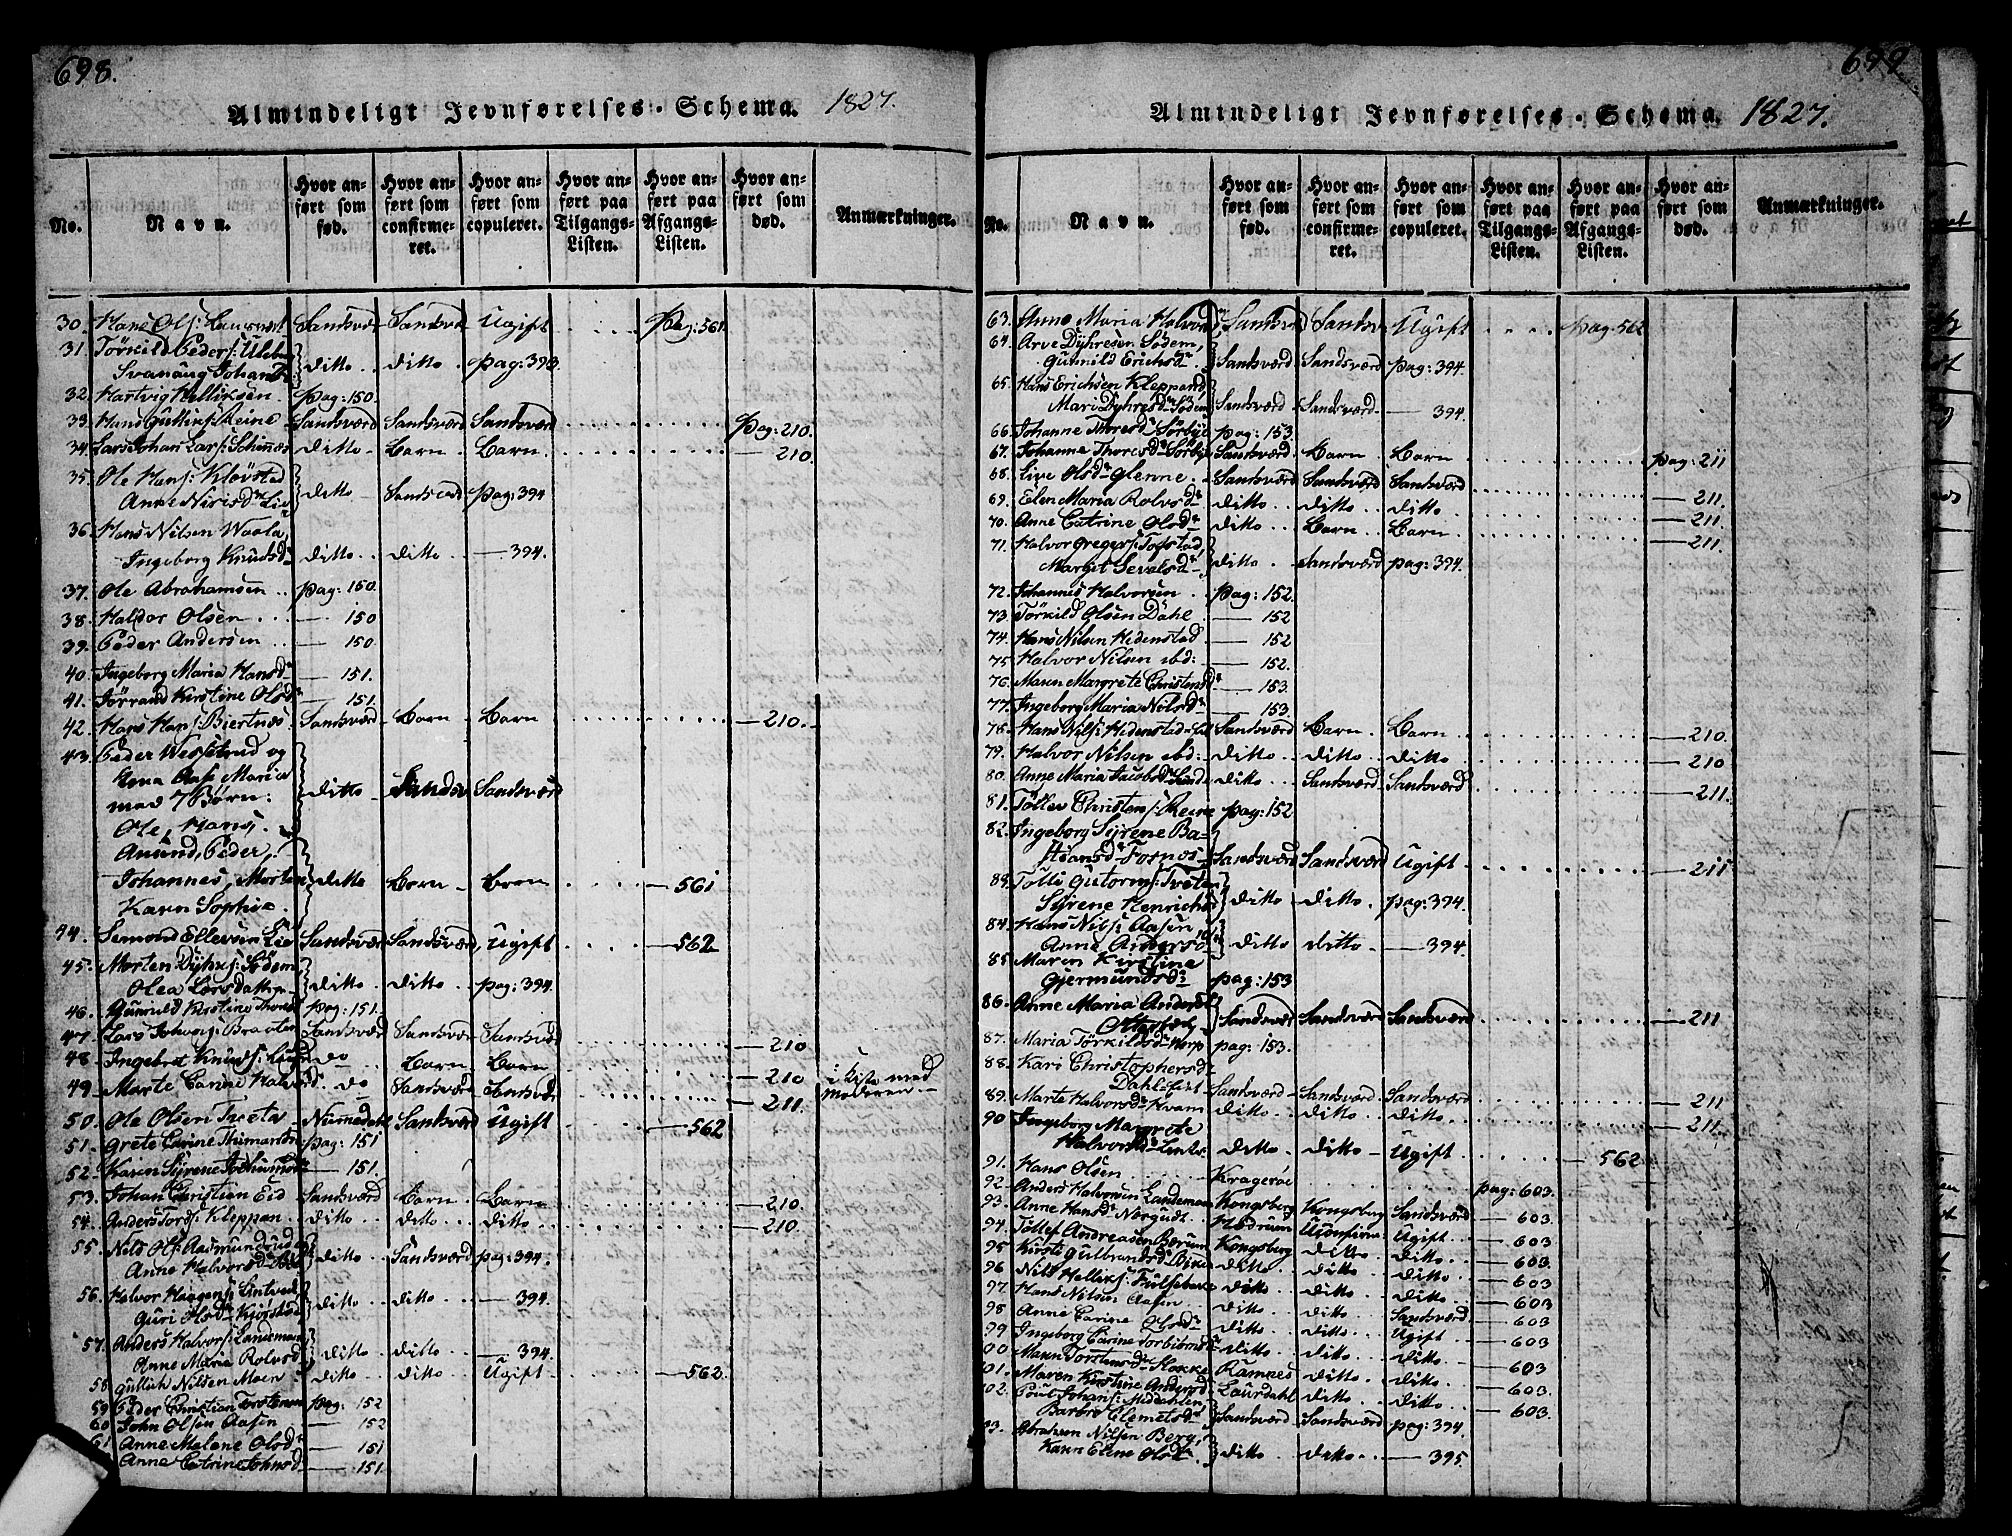 698.
Almindeligt Jevnførelses-Schema. 1827.
No. Navn. Hvor anført som fød. Hvor anført som confirmeret. Hvor anført som copuleret. Hvor anført paa Tilgangs-Listen. Hvor anført paa Afgangs-Listen. Hvor anført som død. Anmærkninger.
30. Hans Ols: Sandsv. Sandsv. Ugift pag: 561
31. Törkild Peder s:
Johans ditto ditto pag: 393
32. Hartvig Helliksen pag: 150.
33. Hans Reine Sandsværd Sandsværd Sandsværd pag: 210.
34. Lars Johan Lars s: ditto Barn Barn 210.
35. Ole Hans s: Kløvstad
Anne ditto Sandsværd pag: 394
36. Hans Nilsen Waala,
Ingeborg Knudsd. ditto ditto 394.
37. Ole Abrahamsen pag: 150.
38. Haldor Olsen 150
39. Peder Andersen 150
40. Ingeborg Maria Hansd. 151.
41. Jörrand Kirstine Olsd. 151.
42. Hans Hans s: Biertnæs Sandsværd Barn Barn 210.
43. Peder og
Kona Maria
med 7 Børn: ditto Sandsv Sandsværd
Ole, Hans,
Amund, Peder,
Johannes, Morten ditto Barn Barn 561
Karn Sophie.
44. Semond Ellevsen Lie Sandsvær Sandsværd, Ugift 562
45. Morten Dyhr s: Sødem
Olea Larsdatter ditto ditto pag: 394.
46. Gunnild Kirstine pag: 151.
47. Lars Sandsværd Sandsværd Sandsværd 210
48. Ingebret Knuds: do Barn Barn 210 i Kiste med
49. Marte Carine Halvorsd. do Sandsvær Sandsvær 211. Moderen
50. Ole Olsen Tveta Nummedahl Sandsværd Ugift 562
51. Grete Carine pag: 151
52. Karen Syrene 151.
53. Johan Christian Eid Sandsværd Barn Barn 210.
54. Anders Tords: Kleppan ditto ditto ditto 210.
55. Nils Ols: Aasmundrud
Anne Halvorsd. ditto Sandsværd pag: 394.
56. Halvor Haagens: Lintved,
Guri Olsd. ditto ditto 394.
57. Anders Halvors: Landeman
Anne Maria Rolvsd. ditto ditto 394.
58. Gullik Nilsen Moen ditto ditto Ugift 562.
59. Peder Christian Torstensen pag: 152
60. John Olsen Aasen 152
61 Anne Malene Olsd. 151
Anne Catrine Johnsd. 151.
699
Almindeligt Jevnførelses-Schema. 1827.
No. Navn. Hvor anført som fød. Hvor anført som confirmeret. Hvor anført som copuleret. Hvor anført paa Tilgangs-Listen. Hvor anført paa Afgangs-Listen. Hvor anført som død. Anmærkninger.
63. Anne Maria Halvorsd. Sandsv Sandsv Ugift pag: 562
64. Arve Dyhresen Sødem,
Gunnild Erichsd. Sandsværd Sandsværd pag: 394
65. Hans Erichsen Kleppand,
Mari Dyhresd. Sødem Sandsværd Sandsværd 394
66. Johanne Thoresd. Sørbye pag: 153
67. Johanne Thoresd. Sørby Sandsværd Barn Barn pag: 211
68. Live Olsd. Glenne Sandsværd Sandsværd Sandsværd 211.
69. Elen Maria Rolvsd. ditto ditto ditto 211.
70. Anne Catrine Olsd. ditto Barn Barn 211.
71. Halvor Gregers: Tofstad,
Marget Sevalsd. ditto Sandsværd pag: 394.
72. Johannes Halvorsen pag: 152.
73. Törkild Olsen Dahl 152
74. Hans Nilsen Hedenstad 152
75. Halvor Nilsen ibd: 152.
76. Maren Margrete Christensd. 153.
77. Ingeborg Maria Nilsd. 153.
78. Hans Nils: Hedenstad Sandsværd Barn Barn 210.
79. Halvor Nilsen ibd: ditto ditto ditto 210
80. Anne Maria Jacobsd. ditto Sandsværd Sandsværd 211.
81. Töllev Christens: Reine pag: 152
82. Ingeborg Syrene Ba=
stiansd. Fosnæs Sandsværd Sandsværd Ugift 211
83. Tölle Gutorms: Tveten
Syrene Henrichsd. ditto ditto pag: 394.
84. Hans Nils: Aasen,
Anne Andersd. ditto ditto 394.
85. Maren Kirstine
Gjermundsd. pag: 153
86. Anne Maria Andersd. Sandsvær Sandsværd Sandsværd 211
87. Maria Törkildsd. pag: 153.
88. Kari Christophersd.
Dahl Sandsværd Sandsværd Sandsværd 211
89. Marte Halvorsd. Hvam ditto ditto ditto 211.
90 Ingeborg Margrete
Halvorsd. ditto ditto Ugift 562
91. Hans Olsen Kragerøe pag: 603.
92. Anders Halvorsen Landeman Kongsberg Kongsberg Sandsværd 603
93. Anne Hansd. Ugift 603
94. Tollef Andreasen Bærum Kongsberg ditto ditto 603
95 Kirsti Gulbrandsd. ditto ditto ditto 603
96 Nils Helliks: ditto ditto ditto 603
97. Hans Nilsen Aasen ditto ditto Sandsværd 603
98 Anne Carine Olsd. ditto ditto Ugift 603
99 Ingeborg Carine Torbiörnsd. ditto ditto ditto 603
00 Maren Torstensd. Ramnes ditto ditto 603.
01. Maren Kirstine Andersd. Laurdahl ditto ditto 603.
02. Poul Johans:
Barbro Clemetsd. Sandsværd Sandsværd pag: 394.
03. Abraham Nilsen Berg,
Karen Elene Olsd. ditto ditto 395.